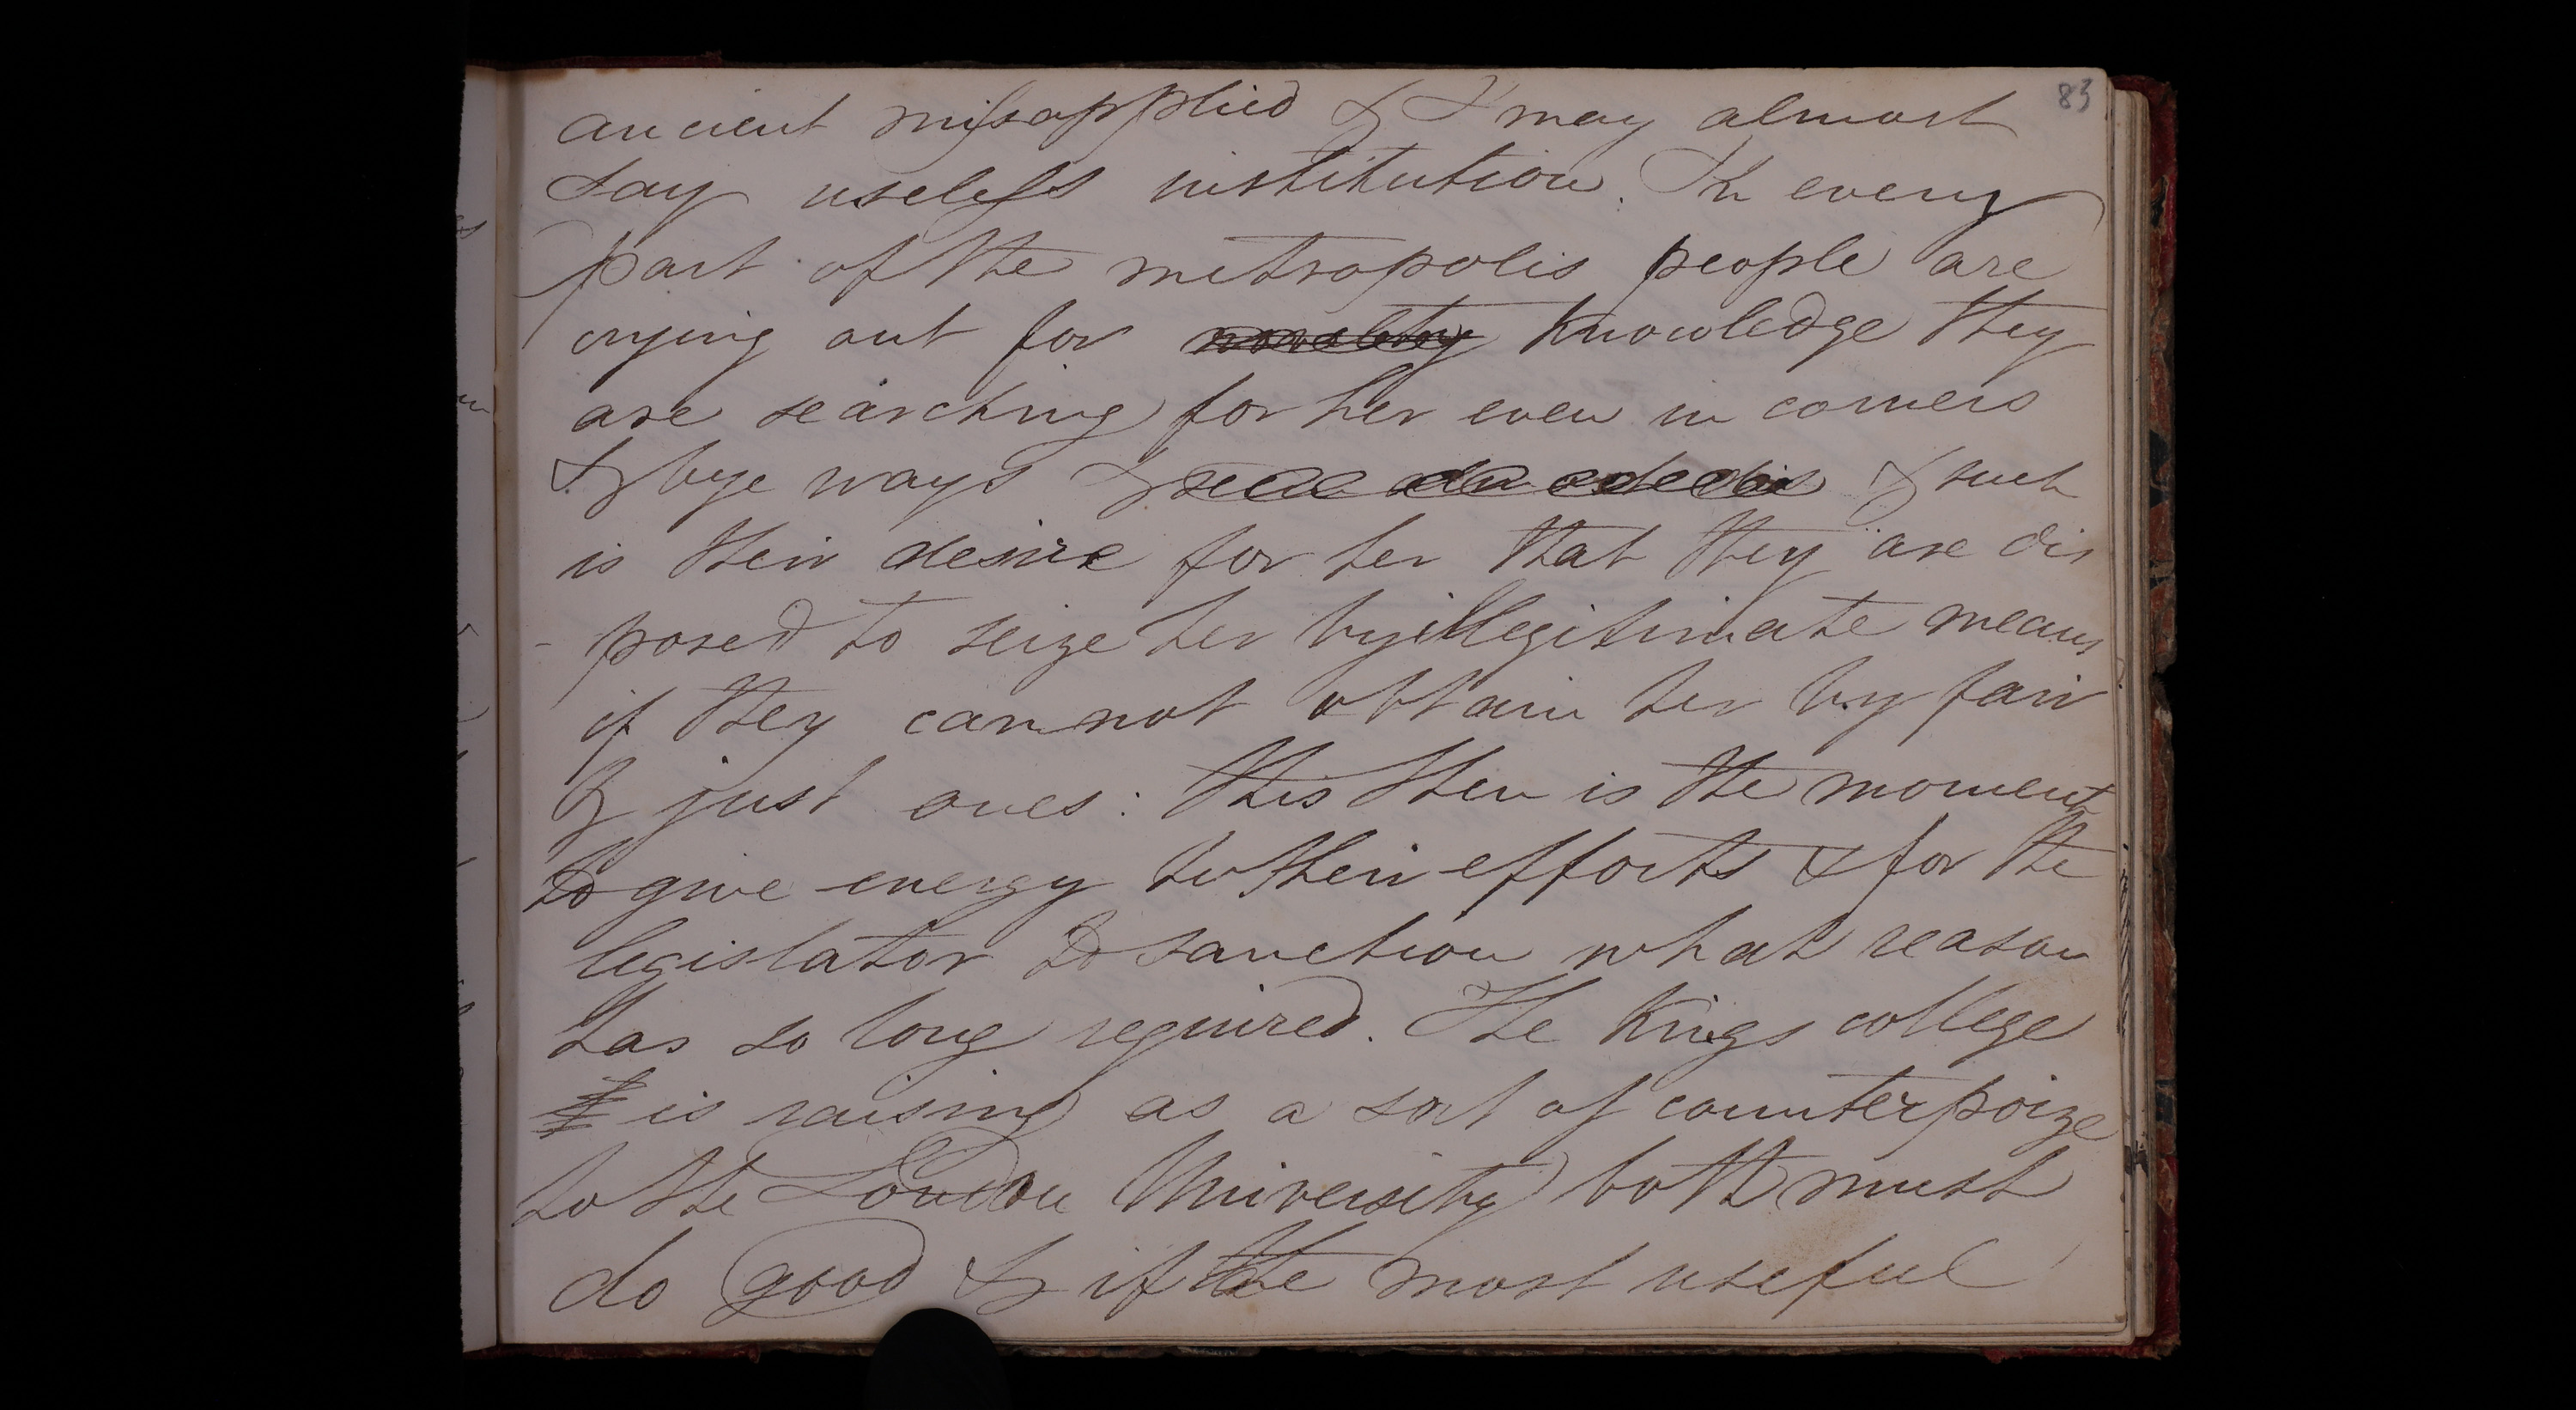 83
ancient misapplied & I may almost
say useless institution. In every
part of the metropolis people are
crying out for knowledge they
are searching for her even in corners
& bye ways & & such
is their desire for her that they are dis
- posed to seize her by illegitimate means
if they cannot obtain her by fair
& just ones: this then is the moment
to give energy to their efforts & for the
legislator to sanction what reason
has so long required. The Kings college
is raising as a sort of counterpoize
to the London University both must
do good & if the most useful